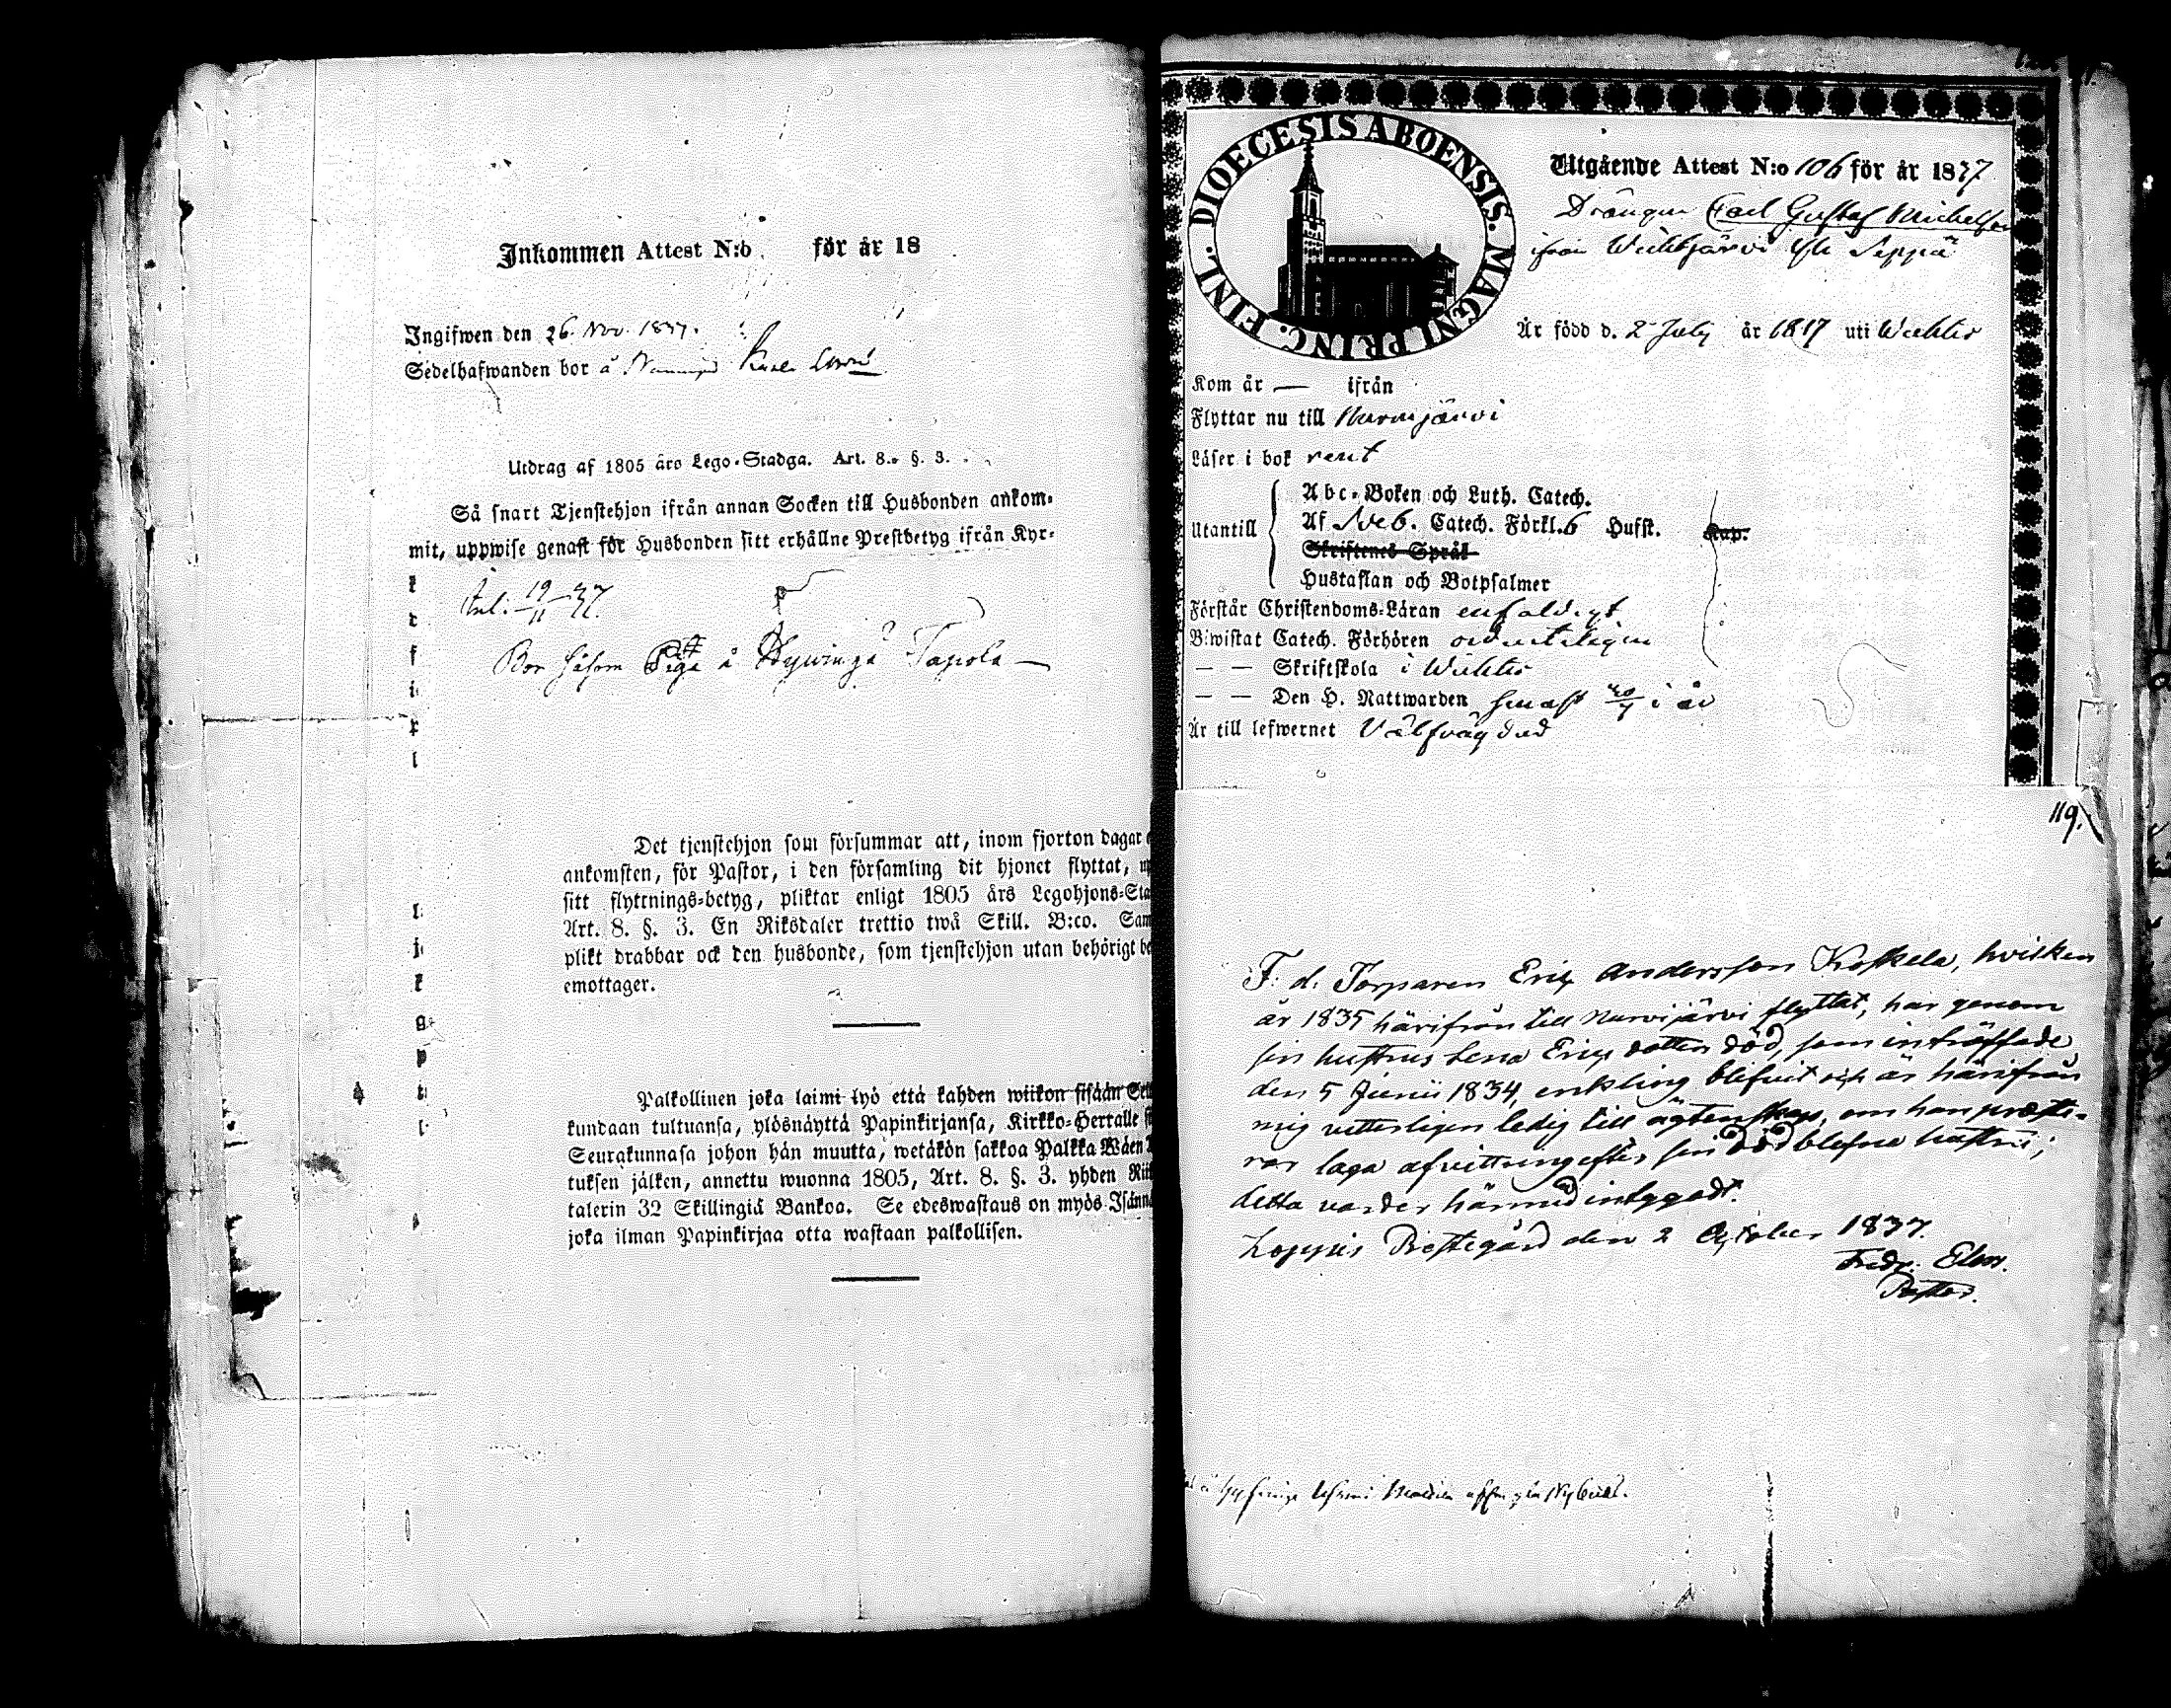 Inkommen Attest N:o för år 18
Ingifwen den 26 Nov. 1837.
Sedelhafwanden bor å
Utdrag af 1805 års Lego-Stadga. Art. 8. §. 3.
Så snart Tjenstehjon ifrån annan Socken till Husbonden ankom-
mit, uppwise genast för Husbonden sitt erhållne Prestbetyg ifrån Kyr-
Anl. 19/11 37.
Bor såsom Piga å Hywinge Tapola
Det tjenstehjon som försummar att, inom fjorton dagar
ankomsten, för Pastor, i den församling dit hjonet flyttat,
sitt flyttnings-betyg, pliktar enligt 1805 års Legohjons-Sta
Art. 8. §. 3. En Riksdaler trettio twå Skill. B:co. Sam
plikt drabbar ock den husbonde, som tjenstehjon utan behörigt be
emottager.
Palkollinen joka laimi-lyö että kahden wiikon sisään Seu
kundaan tultuansa, ylösnäyttä Papinkirjansa, Kirkko-Herralle
Seurakunnasa johon hän muutta, wetäkön sakkoa Palkka Wäen
tuksen jälken, annettu wuonna 1805, Art. 8. §. 3. yhden Riik
talerin 32 Skillingiä Bankoa. Se edeswastaus on myös Isännä
joka ilman Papinkirjaa otta wastaan palkollisen.
DIOECESIS ABOENSIS. MAGNI PRINC. FINL.
Utgående Attest N:o 106 för år 1837
Drängen Carl Gustaf Michelsson
ifrån Wichtjärvi Seppä
Är född d. 2 July år 1817 uti Wichtis
Kom år — ifrån
Flyttar nu till Nurmijärvi
Läser i bok rent
Utantill
Abc-Boken och Luth. Catech.
Af Sveb. Catech. Förkl. 6 Hufst. Kap.
Skriftenes Språk
Hustaflan och Botpsalmer
Förstår Christendoms-Läran enfaldigt
Biwistat Catech. Förhören ordenteligen
— — Skriftskola i Wichtis
— — Den H. Nattwarden senast i år
Är till lefwernet Välfrägdad
119.
F. d. Torparen Eric Andersson Koskela, hvilken
år 1835 härifrån till Nurmijärvi flyttat, har genom
sin hustrus Lena Ericsdotters död, som inträffade
den 5 Junii 1834, enkling blifvit och är härifrån
mig vetterligen ledig till ägtenskap, om han præste-
rar laga afvittring efter sin död blefne hustru;
detta varder härmed intygadt.
Loppis Prestegård den 2 October 1837.
Fredr. Elm.
Pastor.